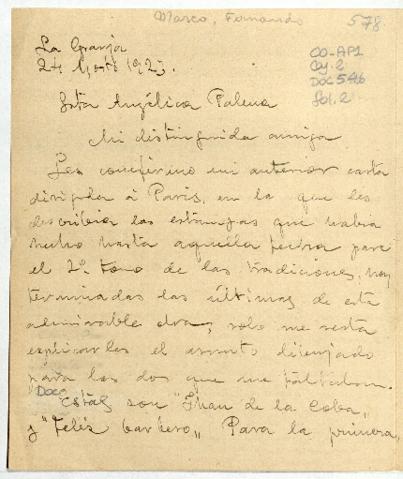 Marco, Fernando 578.
CO-AP1
Cj. 2
DOC 546
Fol. 2
La Granja
24 Agosto 1923.
Srta Angélica Palma
Mi distinguida amiga
Les confirmo mi anterior carta
dirigida á Paris, en la que les
describia las estampas que habia
hecho hasta aquella fecha para
el 2º tomo de las tradiciones, hoy
terminadas las últimas de esta
admirable obra, solo me resta
explicarles el asunto dibujado
para las dos que me faltaban.
Doc
Estas son "Juan de la Coba"
y "Feliz barbero" Para la primera,